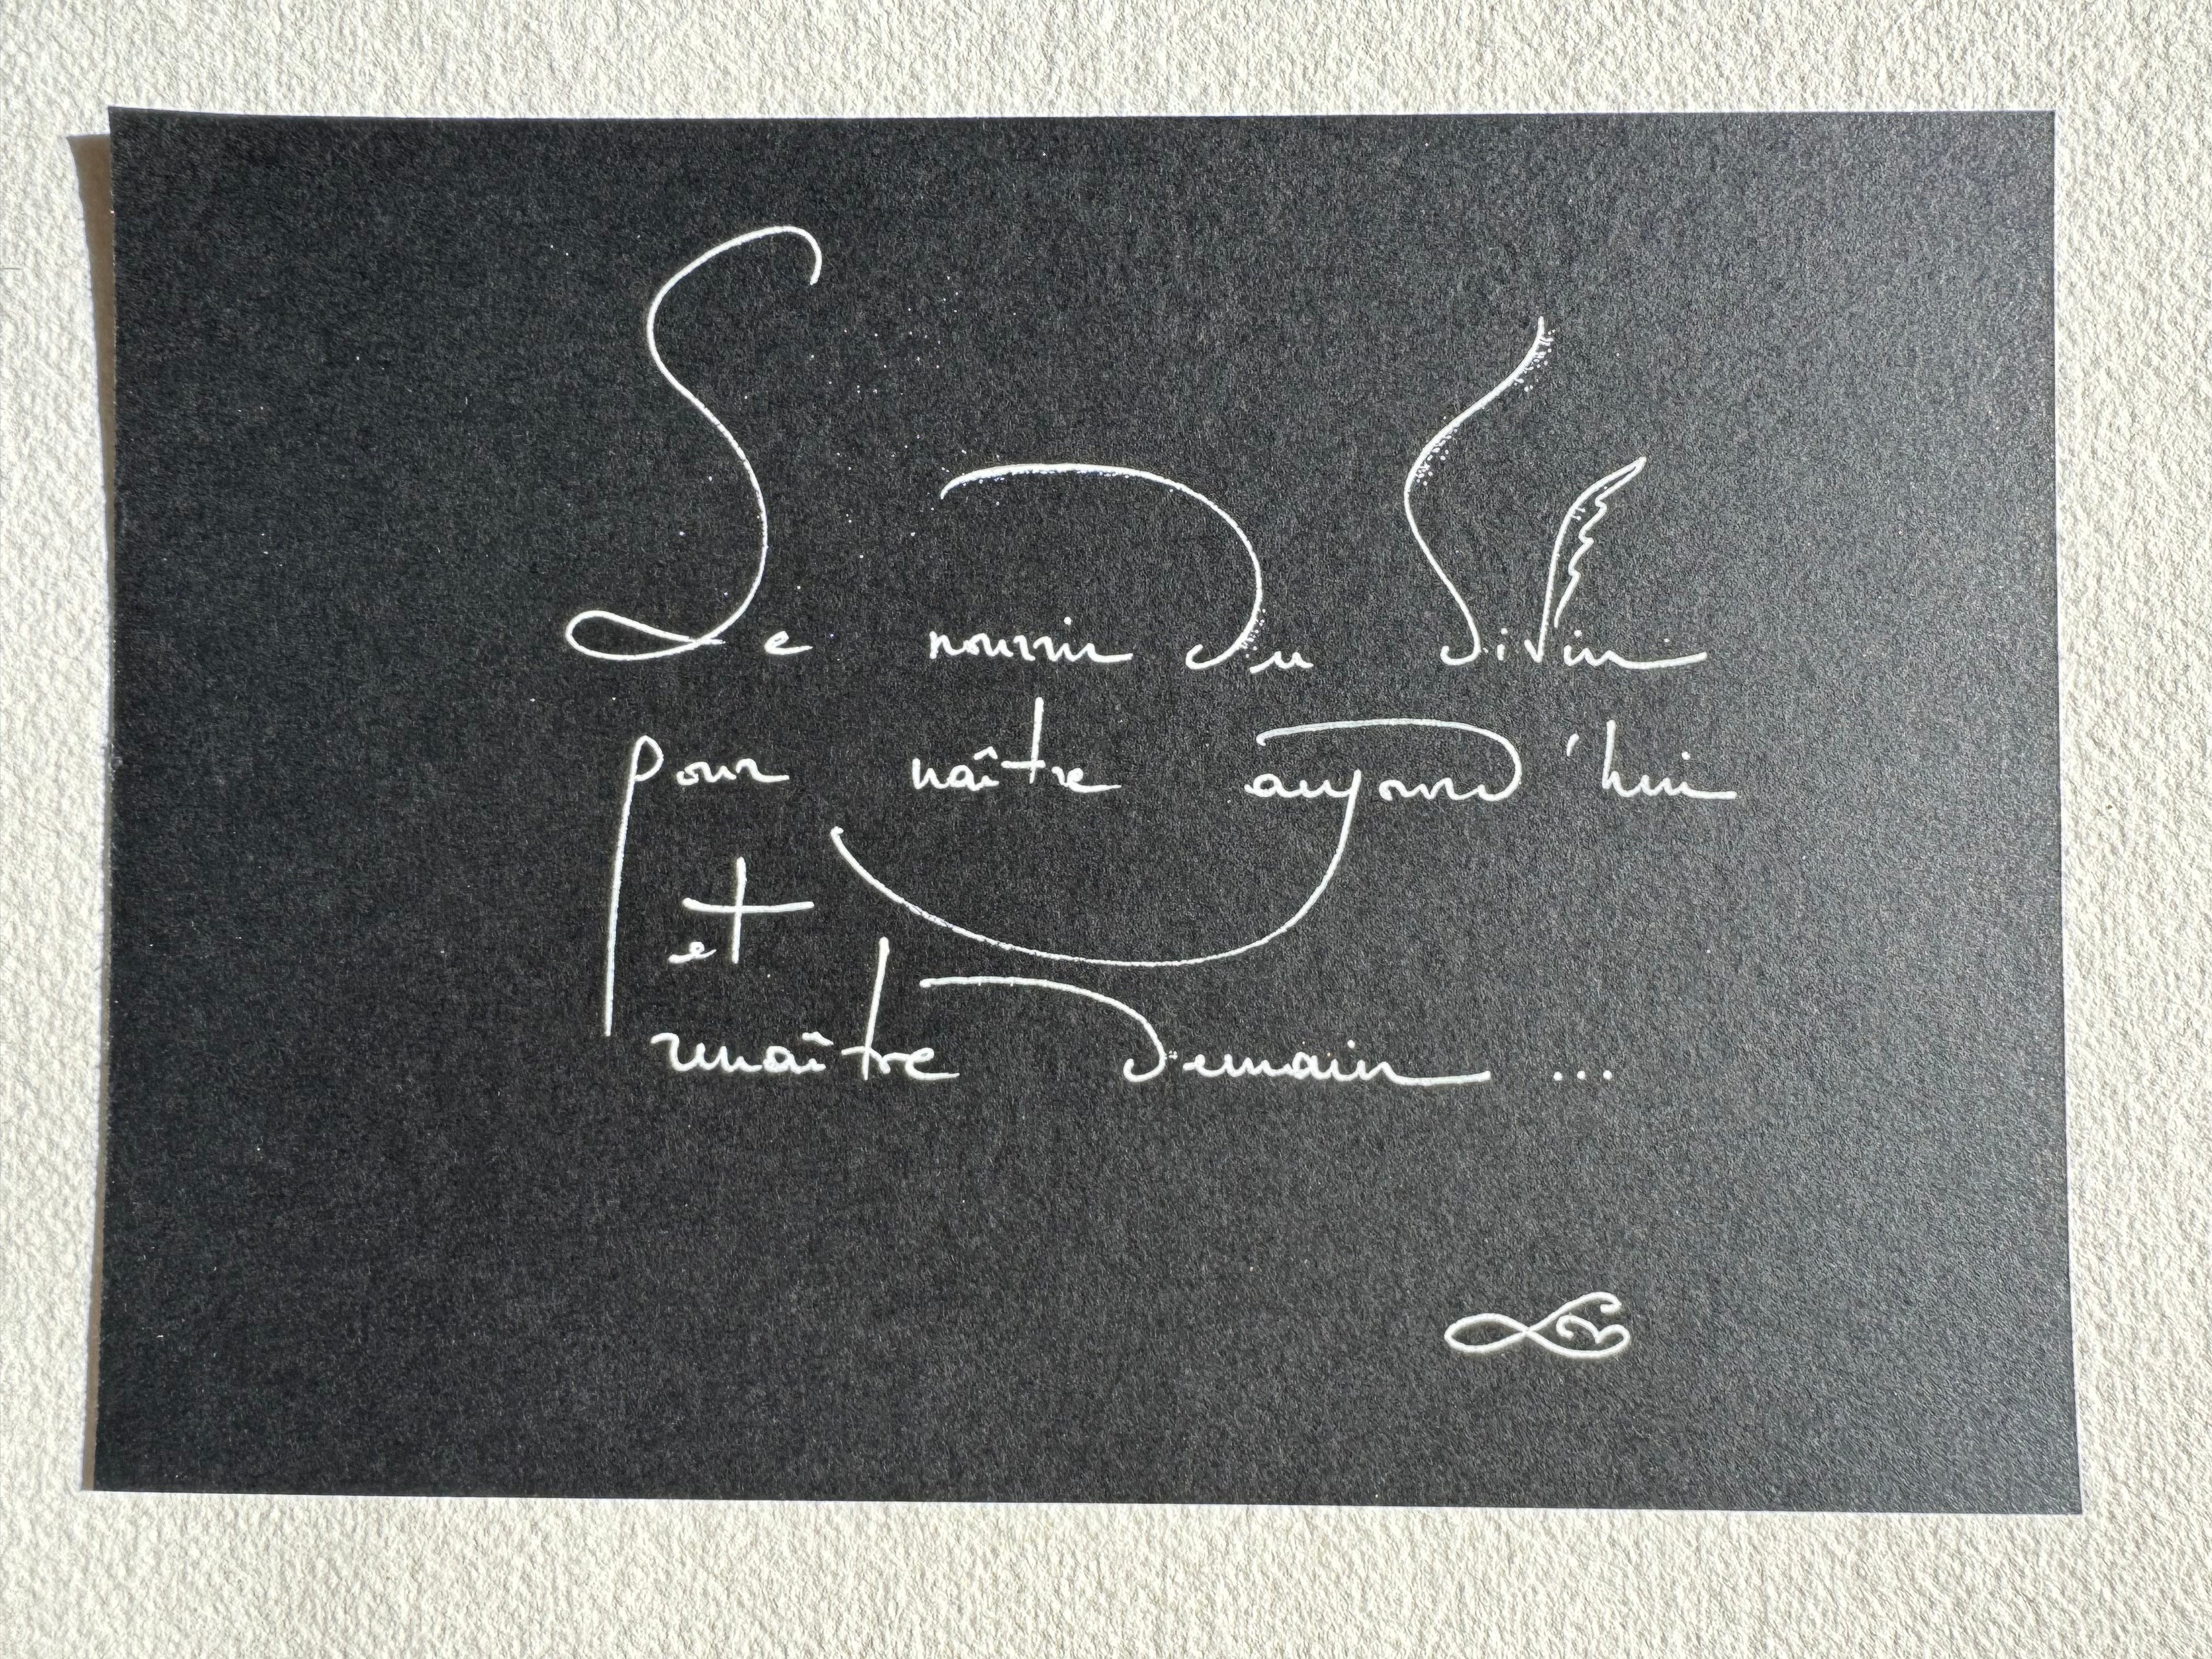 Se nourrir du divin
pour naître aujourd'hui
et
renaître demain ...